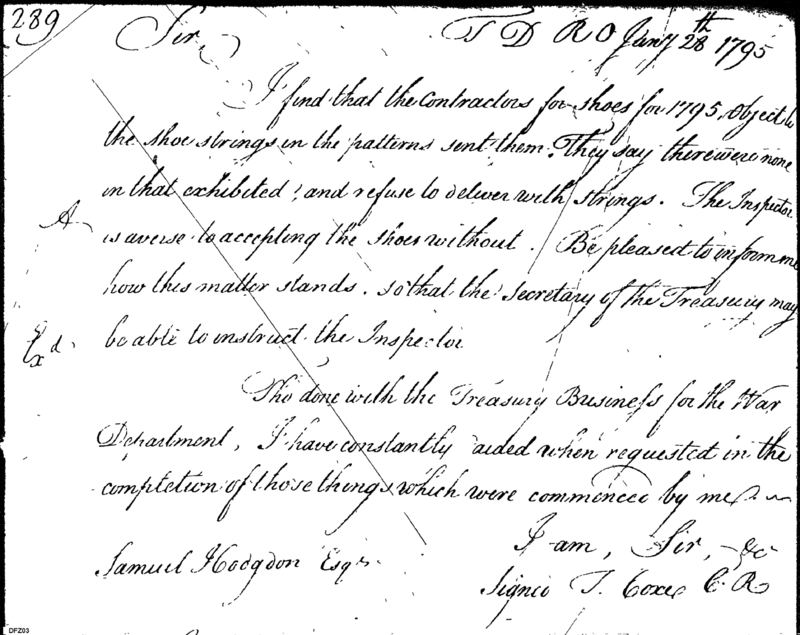 289
Sir,
T D R O Jany 28th 1795
I find that the Contractors for shoes for 1795, object to
the shoe strings in the patterns sent them. They say there were none
in that exhibited, and refuse to deliver with strings. The Inspector
A
is averse to accepting the shoes without. Be pleased to inform me
how this matter stands. so that the Secretary of the Treasury may
Exd.
be able to instruct the Inspector
Tho done with the Treasury Business for the War
Department, I have constantly aided when requested in the
completion of those things which were commenced by me
I am, Sir, &c
Samuel Hodgdon Esqr.
Signed T. Coxe C. R
DFZ03